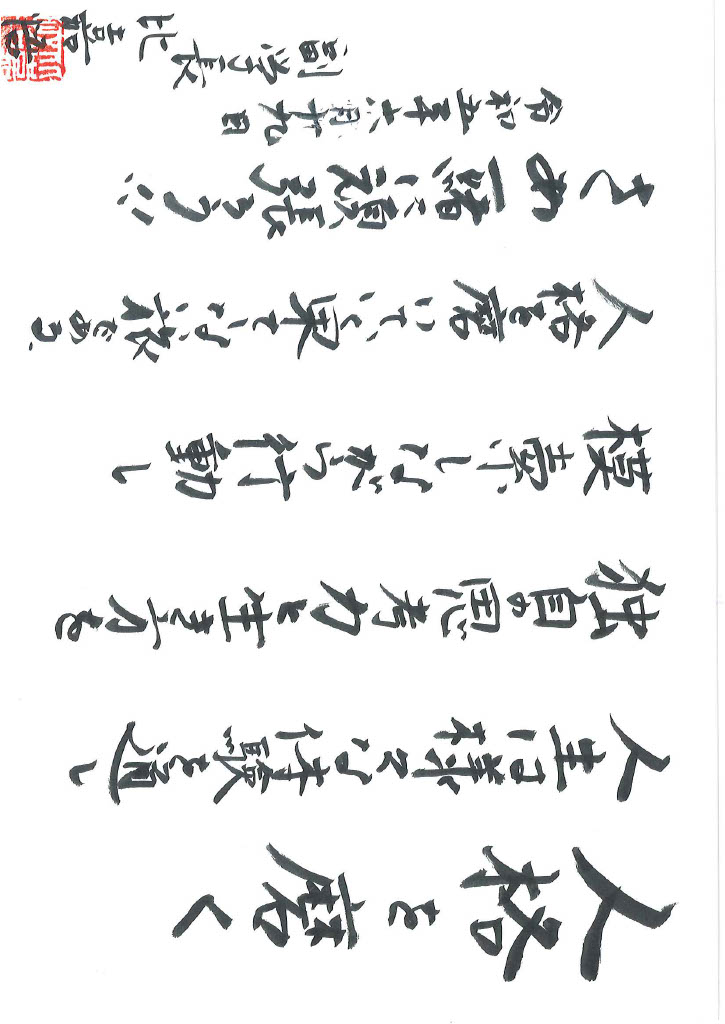 人格を磨く
人生は様々な体験を通し
独自の思考力と生き方を
模索しながら行動し
人格を磨いていく果てしない旅である。
さあ一緒に頑張ろう!!
令和五年六月廿九日
副学長
比嘉悟